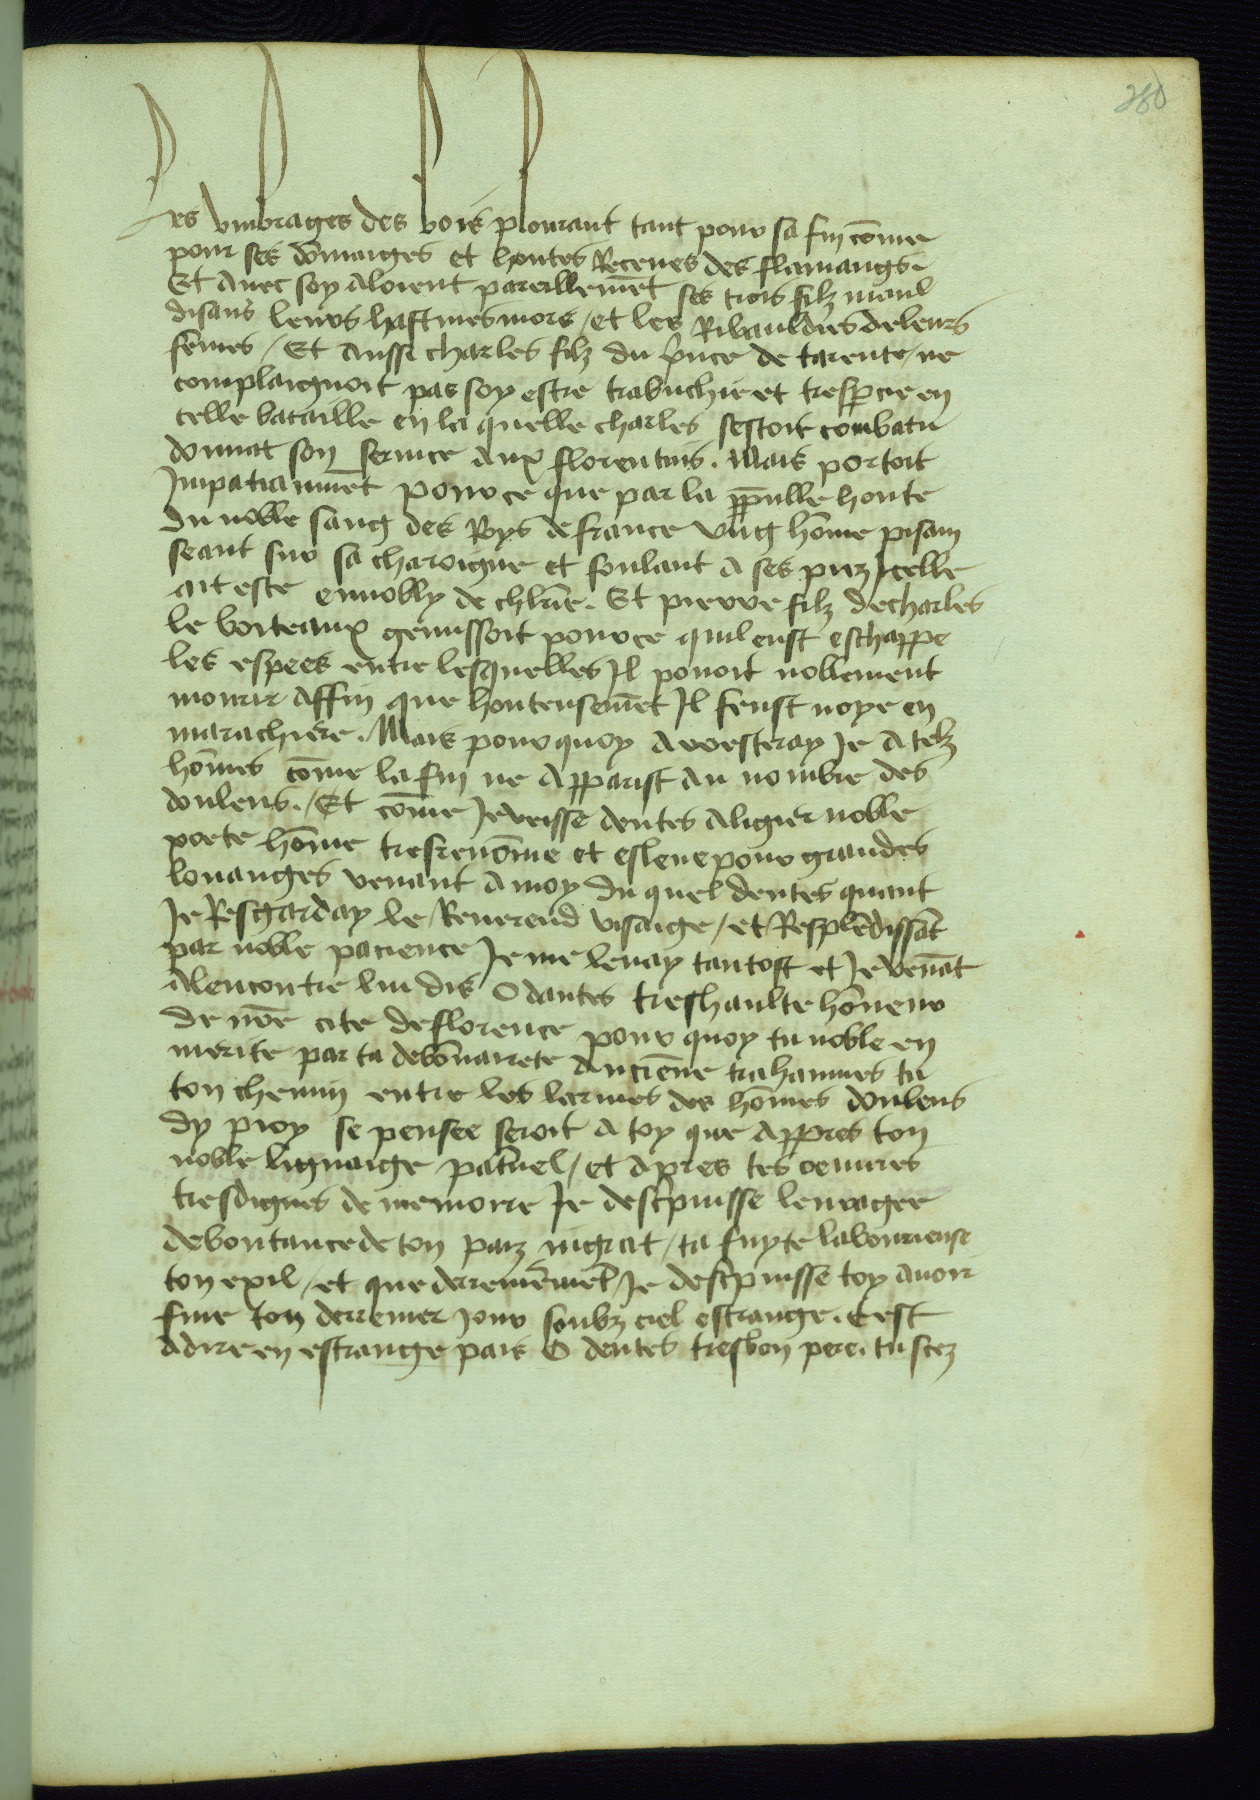 280
Les vmbrages des bois plourant tant pour sa fin cōme
pour ses dōmaiges et hontes Receues des flamangs.
Et Auec soy aloient pareillemēt ses trois filz maul
disans leurs hastiues mors / et les Ribauldies de leurs
fēmes / Et Aussi charles filz du prīce de tarente / ne
complaignoit pas soy estre trabuchie et trespercie en
celle bataille en la quelle charles sestoit combatu
donnāt son seruice aux florentins. Mais portoit
Impatiāmēt pour ce que par la ꝑpetuelle honte
du noble sang des Roys de france vng hōme pisain
seant sur sa charoigne et foulant a ses piez Icelle
ait este ennobly de chlr̄ie. Et pierre filz de charles
le boiteaux gemissoit pour ce quil eust eschappe
les espees entre lesquelles Il pouoit noblement
mourir affin que honteusemēt Il feust noye en
marachiere. Mais pour quoy arresteray Je a telz
hōmes cōme la fin ne Apparist au nombre des
doulens. / Et cōme Je veisse dentes aligier noble
poete hōme tresrenōme et esleue pour grandes
louanges venant a moy du quel dentes quant
Je Resgarday le Reuerend visaige / et Resplēdissāt
par noble pacience Je me leuay tantost et Je venāt
Alencontre lui dis O dantes treshaulte hōneur
de nr̄e cite de florence pour quoy tu noble en
merite par ta debōnairete Anciēne trahannes tu
ton chemin entre les lermes des hōmes doulens
dy proy se pensee seroit a toy que Appres ton
noble lignaige pat̄nel / et apres tes oeuures
tresdignes de memoire Je descripuisse leuragee
deboutance de ton paiz īgrat / ta fuyte labourieuse
ton exil / et que derrenieremēt Je descripuisse toy auoir
fine ton derrenier iour soubz ciel estrange. Cest
adire en estrange pais O dentes tresbon pere. tu scez